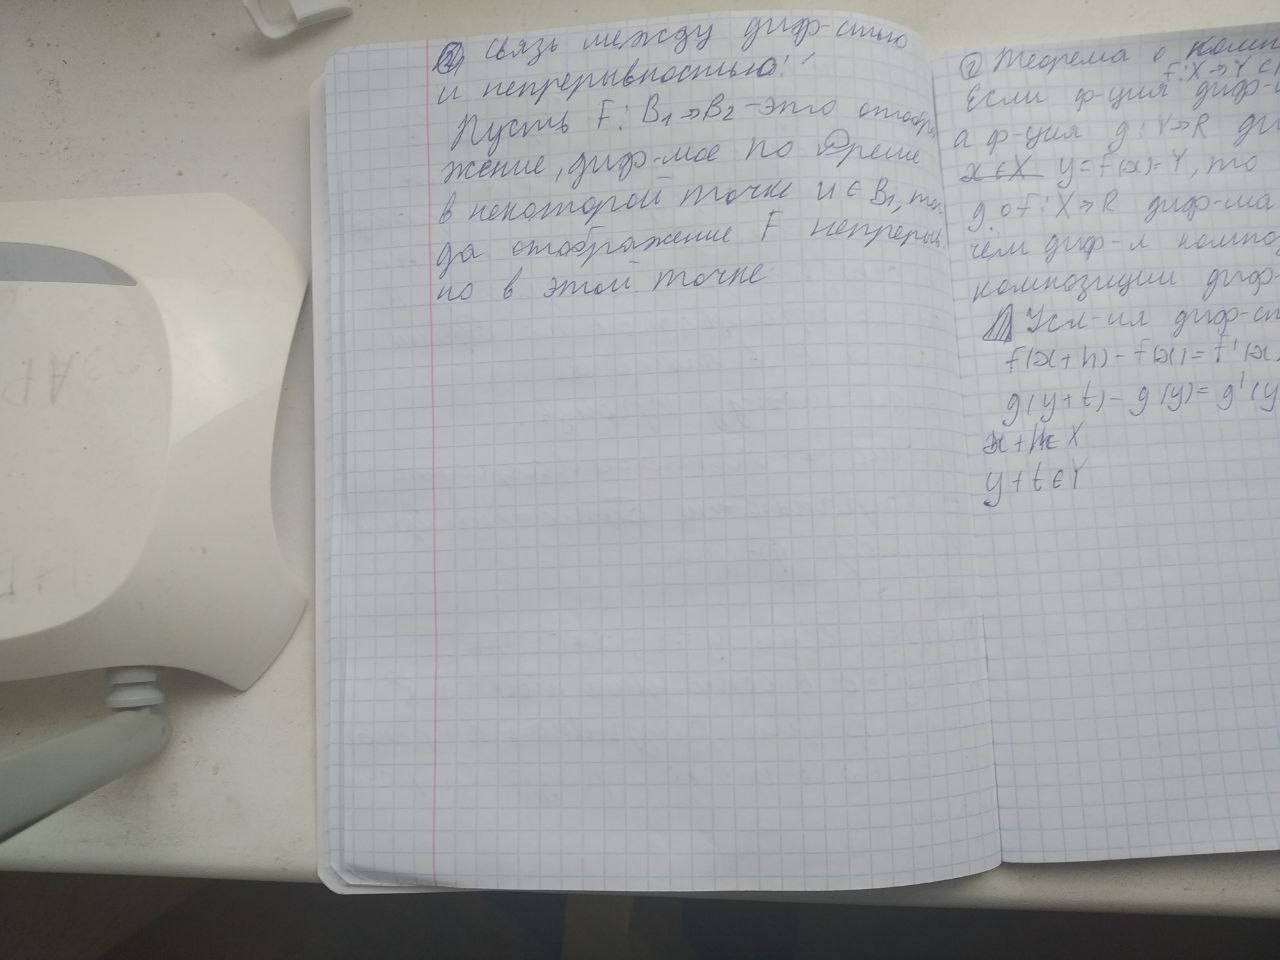 2) Связь между диф-стью
и непрерывностью!
Пусть F: B₁→B₂ - это отобра
жение, диф-мое по Фреше
в некоторой точке u ∈ B₁, тог-
да отображение F непрерыв
но в этой точке
① Теорема о комп
f: X→Y
Если ф-ция диф-
а ф-ция g: Y→R ди
x∈X y=f(x)=Y, то
g∘f: X→R диф-ма
чём диф-л компо
композиции диф-
Усл-ия диф-ст
f(x+h)-f(x)=f'(x)
g(y+t)-g(y)=g'(y
x+h∈X
y+t∈Y